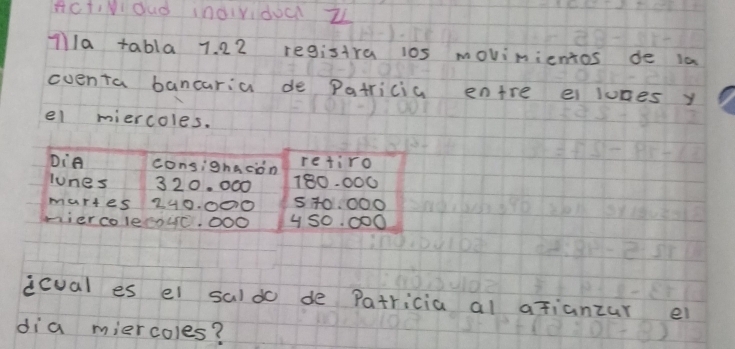 Actividad individual 2
1) la tabla 1.22 registra los movimientos de la
cuenta bancaria de Patricia entre el lunes y
el miercoles.
Dia consignación retiro
lunes 320.000 180.000
martes 240.000 570.000
miercoles .000 450.000
¿cual es el saldo de Patricia al afianzar el
dia miercoles?